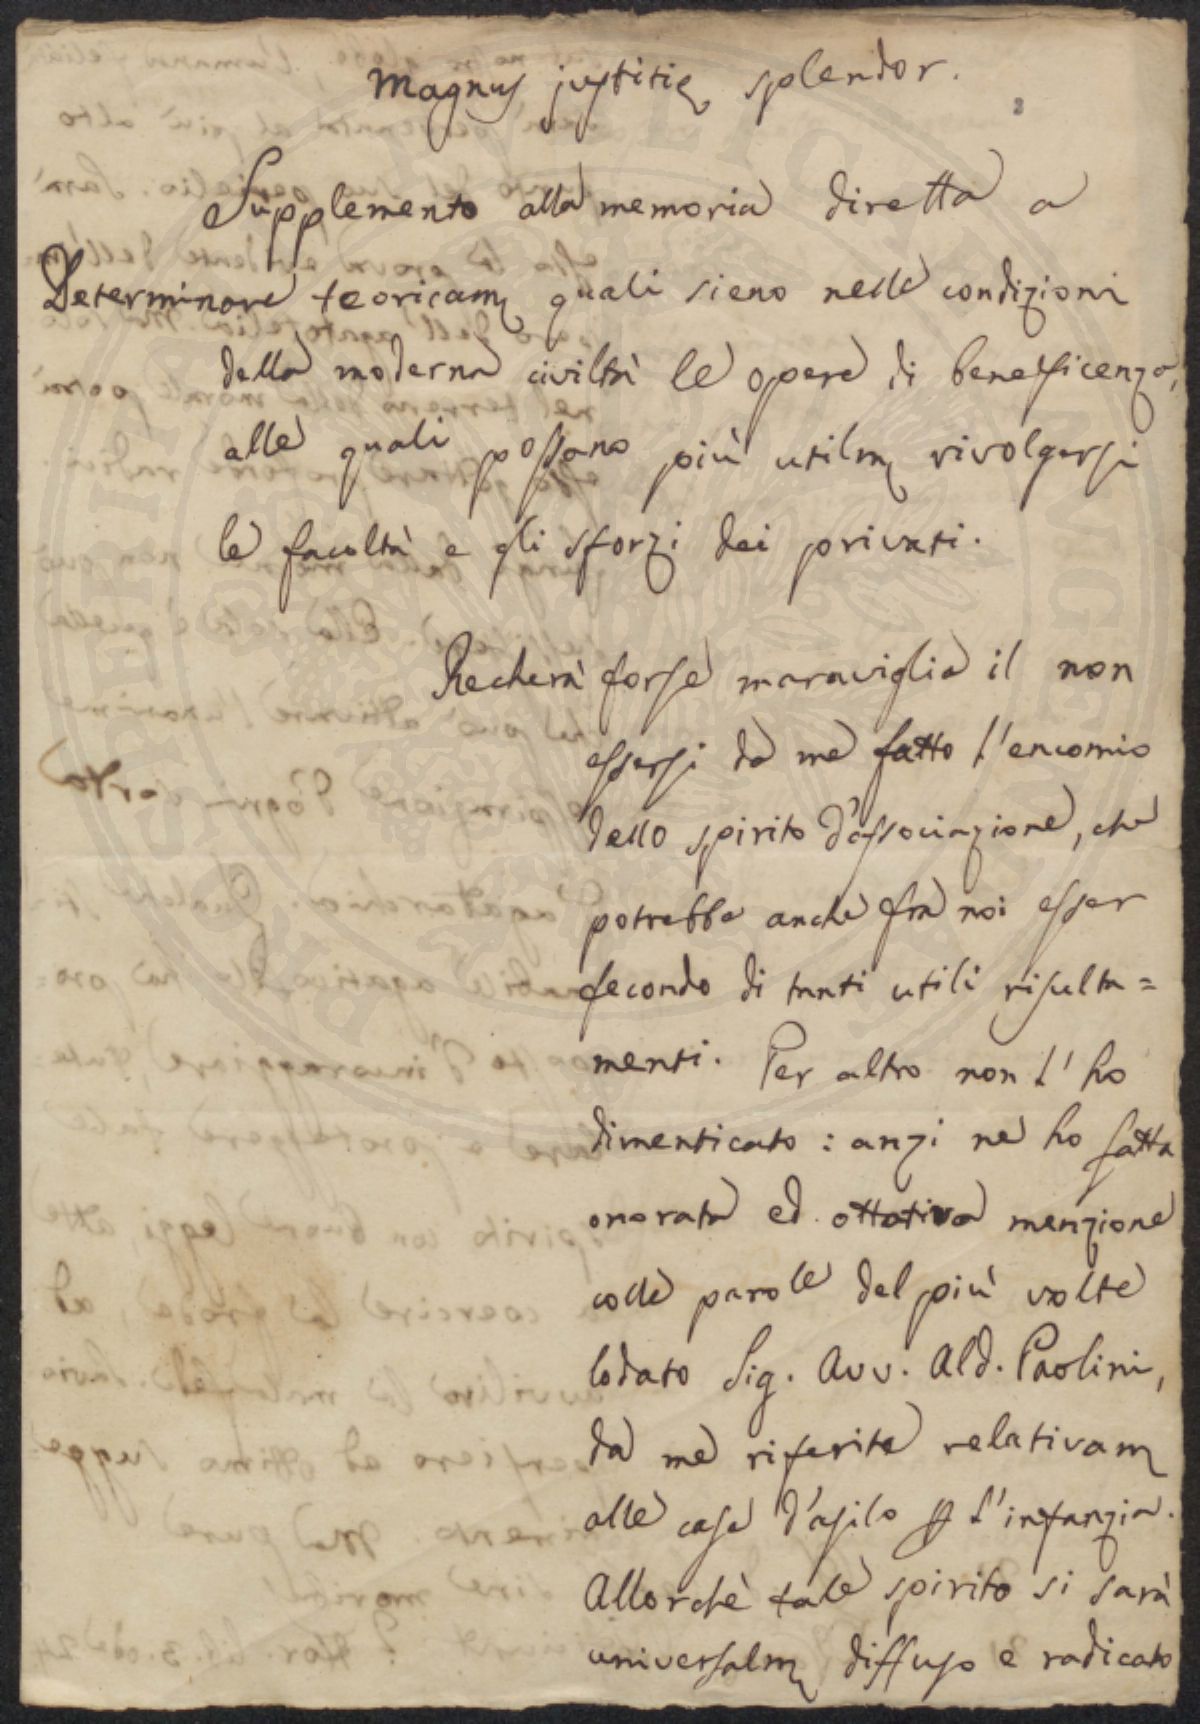 Magnus justitię splendor.
Supplemento alla memoria diretta a
Determinare teoricamę quali sieno nelle condizioni
della moderna civiltà le opere di beneficenza,
alle quali possano più utilmę rivolgersi
le facoltà e gli sforzi dei privati.
Recherà forse maraviglia il non
essersi da me fatto l'encomio
dello spirito d'associazione, che
potrebbe anche fra noi esser
fecondo di tanti utili risulta=
menti. Per altro non l'ho
dimenticato: anzi ne ho fatta
onorata ed ottativa menzione
colle parole del più volte
lodato Sig. Avv. Ald. Paolini,
da me riferite relativamę
alle case d'asilo ꝑ l'infanzia.
Allorchè tale spirito si sarà
universalmę diffuso e radicato